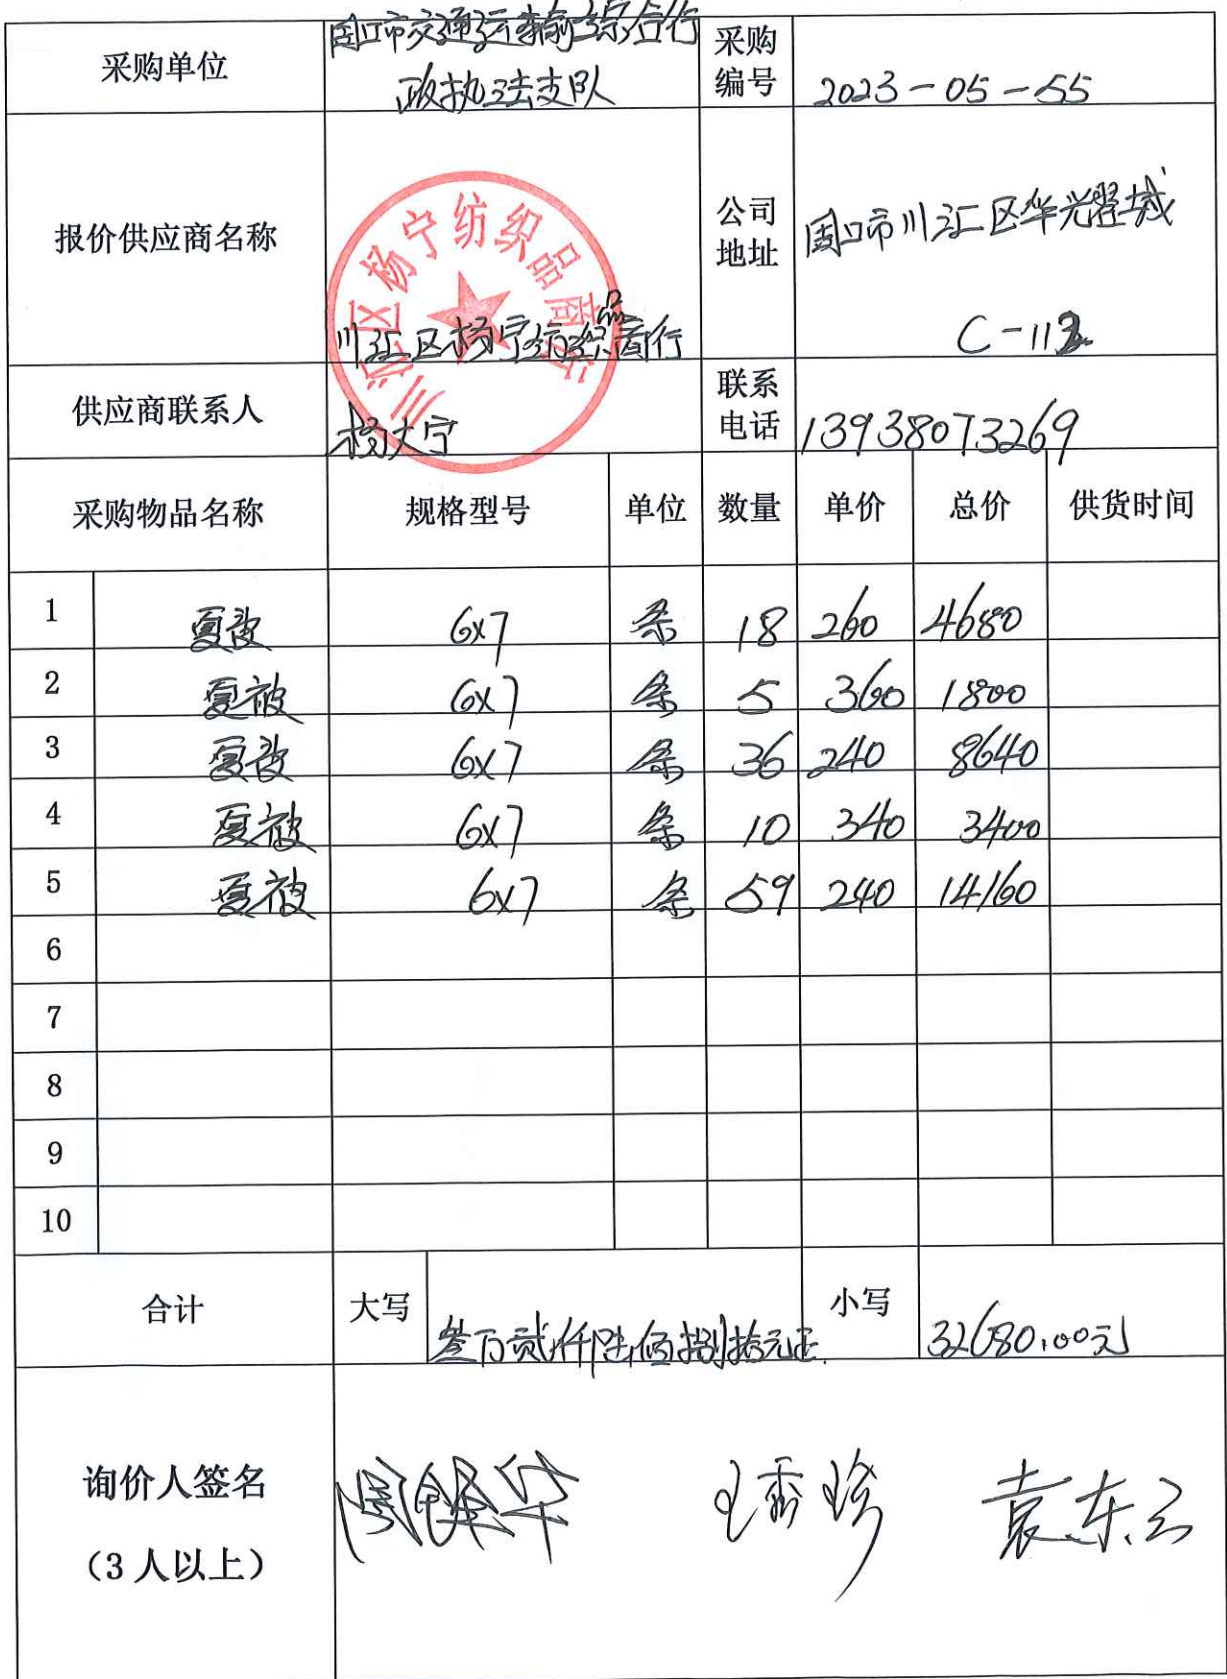 采购单位 周口市交通运输综合行政执法支队 采购编号 2023-05-55
报价供应商名称 川汇区杨宁纺织品商行 公司地址 周口市川汇区华光耀城
C-113
川汇区杨宁纺织品商行
供应商联系人 杨大宁 联系电话 13938073269
采购物品名称 规格型号 单位 数量 单价 总价 供货时间
1 夏被 6x7 条 18 260 4680
2 夏被 6x7 条 5 360 1800
3 夏被 6x7 条 36 240 8640
4 夏被 6x7 条 10 340 3400
5 夏被 6x7 条 59 240 14160
6
7
8
9
10
合计 大写 叁万贰仟陆佰捌拾元正 小写 32680.00元
询价人签名 王秀珍 袁东云
（3人以上）